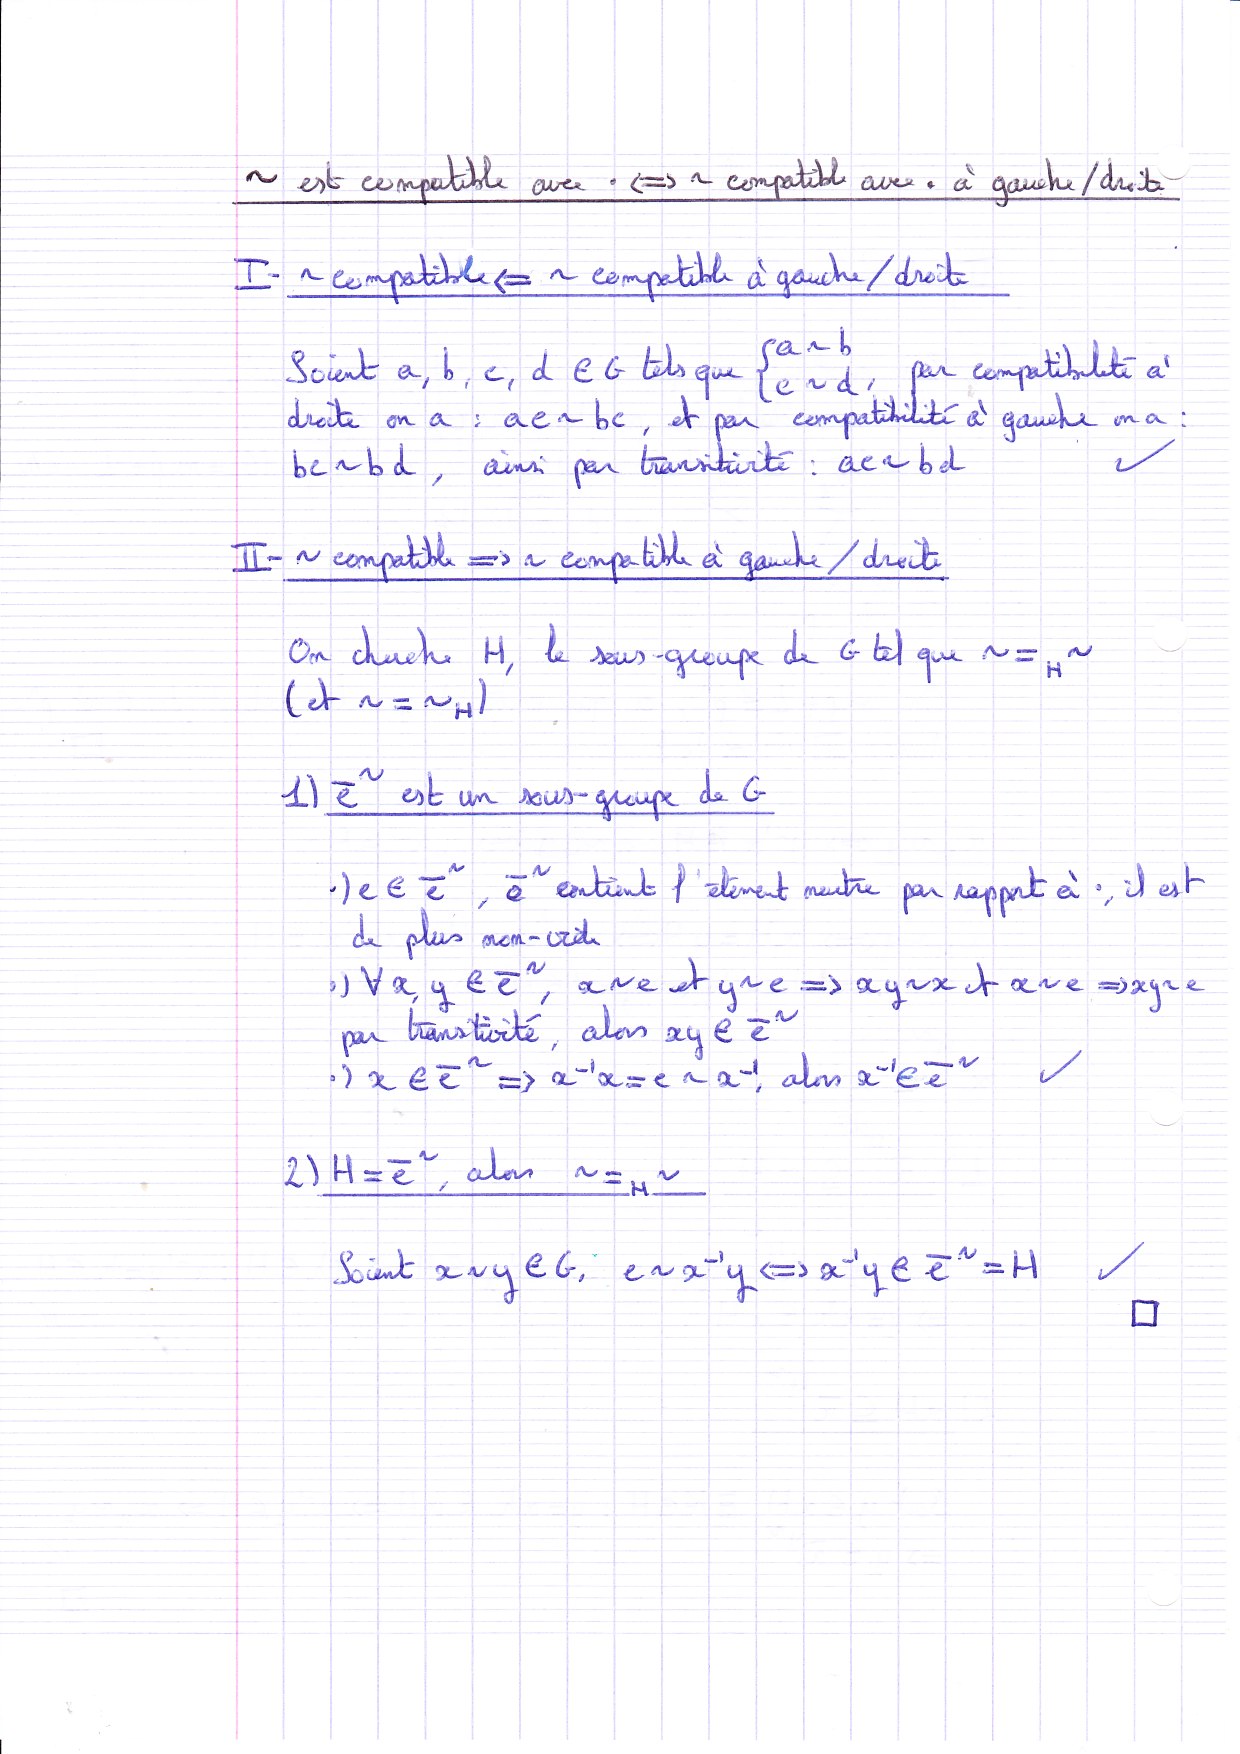 ~ est compatible avec · <=> ~ compatible avec · à gauche/droite
I- ~ compatible <= ~ compatible à gauche/droite
Soient a, b, c, d ∈ G tels que { a ~ b
c ~ d, par compatibilité à
droite on a : ac ~ bc, et par compatibilité à gauche on a :
bc ~ bd, ainsi par transitivité : ac ~ bd ✓
II- ~ compatible => ~ compatible à gauche / droite
On cherche H, le sous-groupe de G tel que ~ = _H~
(et ~ = ~_H)
1) ē^~ est un sous-groupe de G
·) e ∈ ē^~, ē^~ contient l'élément neutre par rapport à ·, il est
de plus non-vide
·) ∀ x, y ∈ ē^~, x ~ e et y ~ e => xy ~ x et x ~ e => xy ~ e
par transitivité, alors xy ∈ ē^~
·) x ∈ ē^~ => x⁻¹x = e ~ x⁻¹, alors x⁻¹ ∈ ē^~ ✓
2) H = ē^~, alors ~ = _H~
Soient x ~ y ∈ G, e ~ x⁻¹y <=> x⁻¹y ∈ ē^~ = H ✓
□